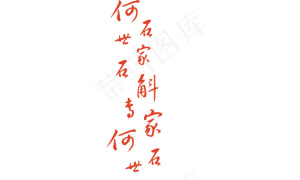 石家斛家石
何世石专何世
图库